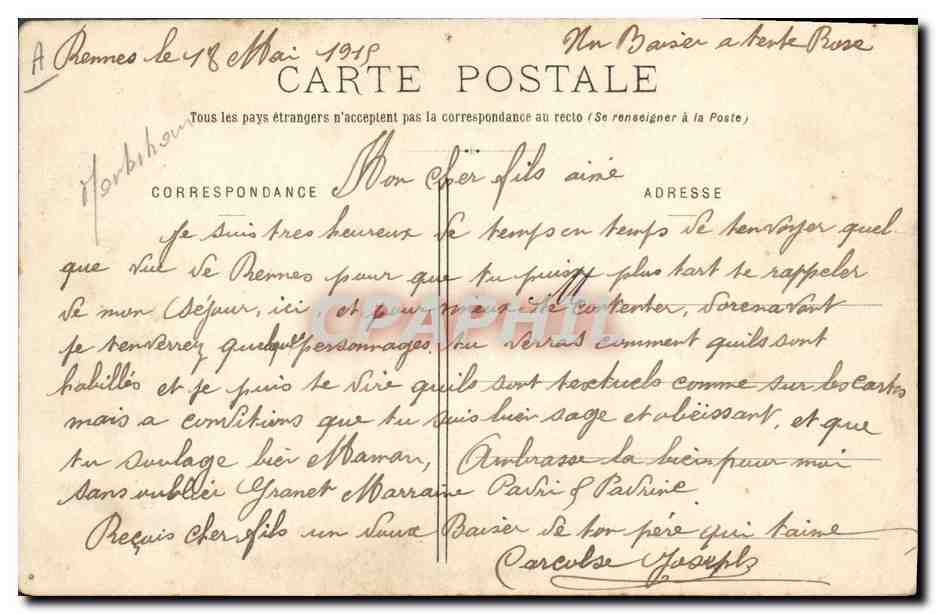 A Rennes le 18 Mai 1915 Un Baiser a tente Rose
CARTE POSTALE
Tous les pays étrangers n'acceptent pas la correspondance au recto (Se renseigner à la Poste)
Mon cher fils aimé
CORRESPONDANCE ADRESSE
Je suis tres heureux de temps en temps de tenvoyer quel-
que vue de Rennes pour que tu puisse plus tart te rappeler
de mon Séjour, ici, et pour mieux te contenter, dorenavant
je tenverrez quelque personnages, tu verras comment quils sont
habillés et je puis te dire quils sont textuels comme sur les cartes
mais a conditions que tu sois bien sage et obéissant, et que
tu soulage bien Maman, Ambrasse la bien pour moi
sans oublier Granet Marraine Padri & Padrine
Reçois cher fils un doux Baiser de ton père qui taime
Joseph
CPAPHIL